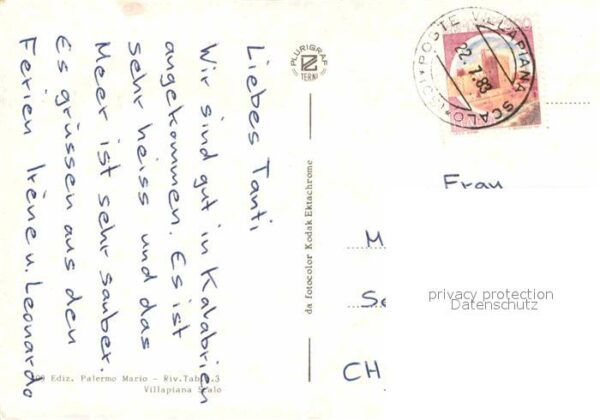 Liebes Tanti
Wir sind gut in Kalabrien
angekommen. Es ist
sehr heiss und das
Meer ist sehr sauber.
Es grüssen aus den
Ferien Irène u. Leonardo
Ediz. Palermo Mario - Riv.Tab. .3
Villapiana Scalo
PLURIGRAF
TERNI
da fotocolor Kodak Ektachrome
POSTE VILLAPIANA SCALO (CS)
22.7.83
Frau
M
Se
CH
privacy protection
Datenschutz